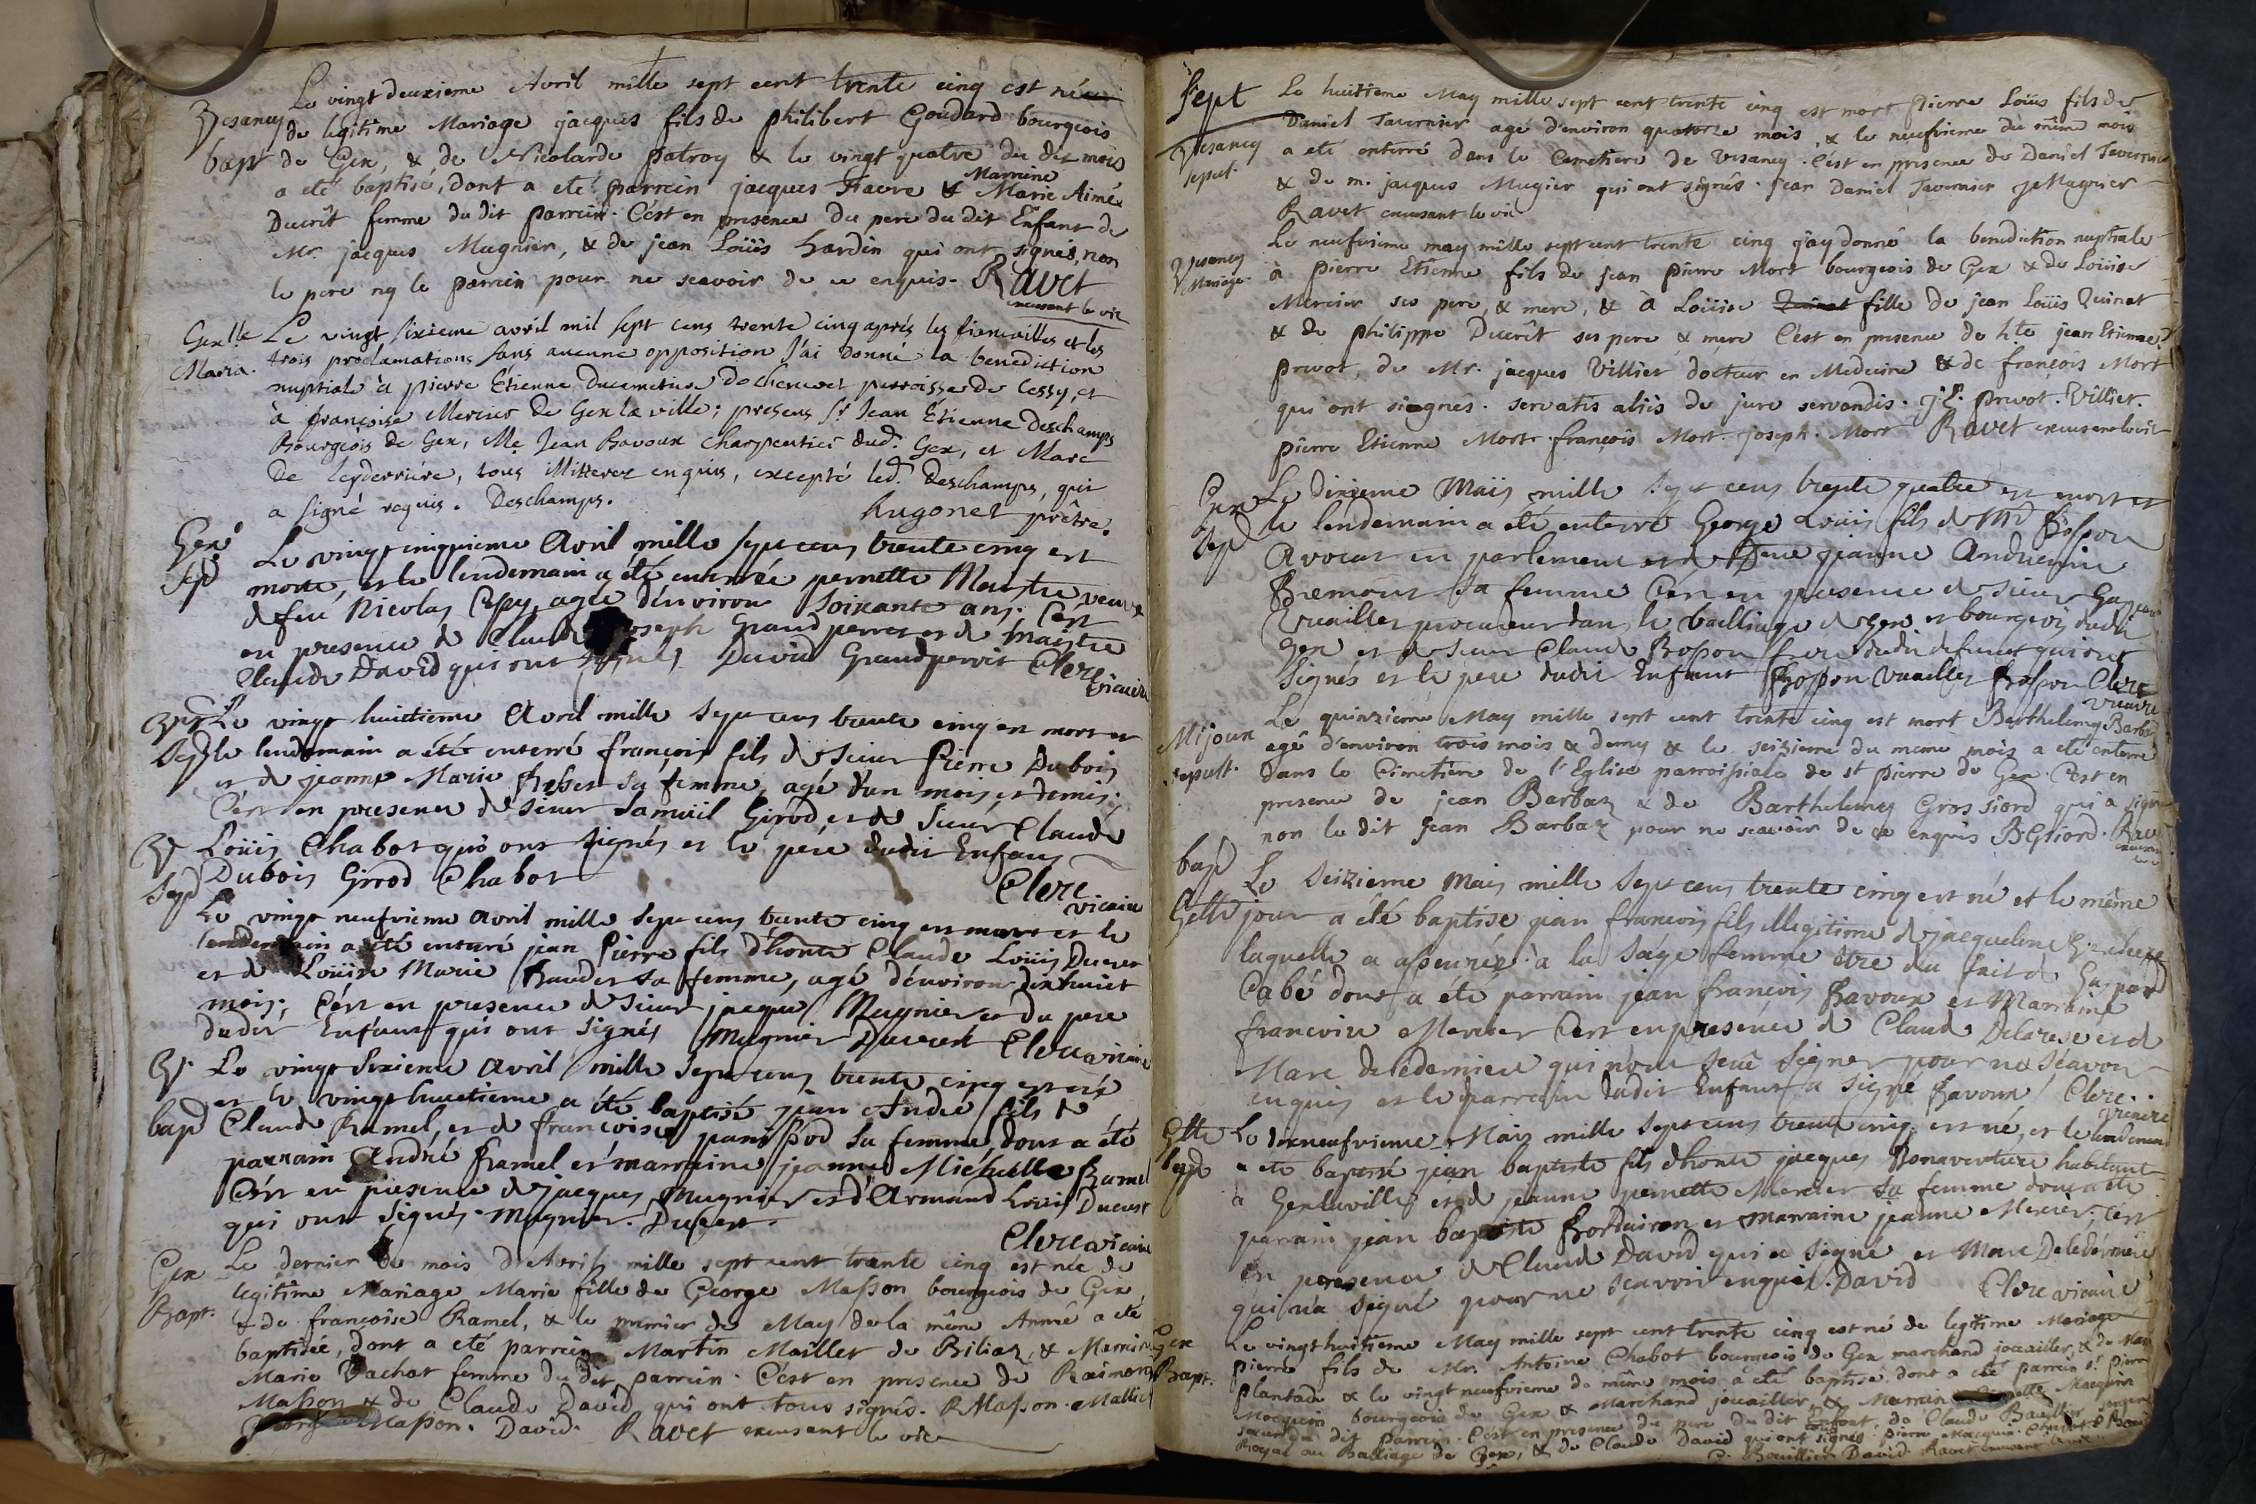 Le vingt deuxieme Avril mille sept cent trente cinq est né
Vesancy de legitime Mariage jacques fils de philibert Goudard bourgeois
bapt de Gex, & de Nicolarde patroy & le vingt quatre du dit mois
a eté baptisé, dont a eté parrein jacques Favre & Marreine Marie Aimée
Ducrêt femme du dit parrein. C'est en presence du pere du dit Enfant de
Mr. jacques Mugnier, & de jean Loüis hardin qui ont signés, non
le pere ny le parrein pour ne scavoir de ce enquis. Ravet
excusant le vic
Gex lle Le vingt sixieme avril mil sept cens trente cinq après les fiancailles et les
Maria. trois proclamations sans aucune opposition j'ai donné la benediction
nuptiale à pierre Etienne Ducimetiere de chenevet parroisse de Cessy, et
à françoise Mercier de Gex la ville; presens Sr Jean Etienne Deschamps
Bourgeois de Gex, Me Jean Bavoux charpentier dud. Gex, et Marc
De leyderriere, tous illitterez enquis, excepté led. Deschamps, qui
a signé requis. Deschamps. hugonet prêtre
Gex Le vingt cinquieme Avril mille sept cens trente cinq est
sep morte, et le lendemain a été enterrée pernette Maistre veuve
de feu Nicolas agée d'environ soixante ans. C'est
en presence de Claude joseph Grandperret et de maistre
Claude David qui ont signés David Grandperrit Clerc
vicaire
Le vingt huitieme Avril mille sept cens trente cinq est mort et
Sep le lendemain a été enterré françois fils de Sieur Pierre Dubois
et de jeanne Marie sa femme, agé d'un mois et demis.
C'est en presence de Sieur Samuël Girod et de Sieur Claude
Loüis Chabot qui ont signés et le pere dudit Enfant
Dubois Girod Chabot Clerc
vicaire
Sep Le vingt neufvieme avril mille sept cens trente cinq est mort et le
lendemain a été enterré jean Pierre fils d'honte Claude Loüis Ducret
et de Loüise Marie Baudet sa femme, agé d'environ dix huict
mois; C'est en presence de Sieur jacque Mugnier et du pere
dudit Enfant qui ont signés Mugnier Ducret Clerc vicaire
Le vingt sixieme Avril mille sept cens trente cinq est né
et le vingt huitieme a été baptisé jean André fils de
bap Claude Ramel, et de françoise sa femme, dont a été
parrain André Ramel et marraine jeanne Michelle Ramel
C'est en presence de jacques Mugnier et d'Armand Loüis Ducret
qui ont signés. Mugnier. Ducret.
Clerc vicaire
Gex Le dernier de mois d'Avril mille sept cent trente cinq est née de
legitime Mariage Marie fille de George Masson bourgeois de Gex
Bapt. & de françoise Ramel, & le premier de May de la même Année a eté
baptisée, dont a eté parrein Martin Maillet de Biliaz, & Marreine
Marie Vachat femme du dit parrein. C'est en presence de Raimond
Masson & de Claude David qui ont tous signés. R Masson. Mallie
George Masson. David. Ravet excusant le vic
Sept Le huitieme May mille sept cent trente cinq est mort Pierre Loüis fils de
Daniel Tavernier agé d'environ quatorze mois, & le neufvieme du même mois
Vesancy a eté enterré dans le Cemetiere de Vesancy. C'est en presence de Daniel Tavernier
sepul. & de m. jacques Mugier qui ont signés. jean Daniel Tavernier J Magnier
Ravet excusant le vic
Le neufvieme may mille sept cent trente cinq j'ay donné la benediction nuptiale
Vesancy à pierre Etienne fils de jean pierre Mort bourgeois de Gex & de Loüise
Mariage. Mercier ses pere, & mere, & à Loüise fille de jean Loüis Quinat
& de philippe Ducrêt ses pere & mere C'est en presence de hte jean Etienne
privot, de Mr. jacques Villiet docteur en Medecine & de françois Mort
qui ont siegnés. servatis aliis de jure servandis. J.E. privot. Villiet.
pierre Etienne Mort. françois Mort. joseph. Mort Ravet excusant le vic
Gex Le dixieme Maij mille sept cens trente quatre est mort et
sep le lendemain a été enterré George Loüis fils de Mr
Avocat en parlement et de Dme jeanne Andrienne
sa femme C'est en presence de Sieur Gaspard
Vuaillet procureur dans le bailliage de Gex et bourgeois dudit
Gex et de Sieur Claude frere dudit defunct qui ont
signés et le pere dudit Enfant Vuaillet Clerc
vicaire
Le quinzieme May mille sept cent trente cinq est mort Barthelemy Barbaz
Mijoux egé d'environ trois mois & demy & le seizieme du meme mois a eté enterré
sepult. Dans le Cimetiere de l'Eglise parroissiale de st pierre de Gex. C'est en
presence de jean Barbaz & de Barthelemy Grossiord qui a signé
non le dit jean Barbaz pour ne scavoir de ce enquis B Gsiord.
bap Le Seizieme Maij mille sept cens trente cinq est né et le même
Gelle jour a été baptisé jean françois fils illegitime de jacqueline
laquelle a asseurée à la sage femme être du fait de Gaspard
Cabé dont a été parrain jean françois Bavoux et Marraine
françoise Mercier C'est en presence de Claude et de
Marc deledernier qui n'ont seu signer pour ne scavoir
enquis et le parrain dudit Enfant a signe Bavoux Clerc
vicaire
Glle Le dixneufvieme Maij mille sept cens trente cinq est né, et le lendemain
bapt a été baptisé jean baptiste fils d'honte jacques Bonaventure habitant
à Gexlaville et de jeanne pernette Mercier sa femme dont a été
parrain jean baptiste et marraine jeanne Mercier; C'est
en presence de Claude David qui a signé et Marc Deledernier
qui n'a signé pour ne scavoir enquis. David Clerc vicaire
Gex Le vingt huitieme May mille sept cent trente cinq est né de legitime Mariage
Bapt. pierre fils de Mr. Antoine Chabot bourgeois de Gex marchand jouaillier, & de
plantade & le vingt neufvieme de même mois a eté baptisé, dont a eté parrein sr. pierre
Macquin bourgeois de Gex & Marchand jouaillier, & Marrein Macquin
soeur du dit parrein. C'est en presence du pere du dit Enfant, de Claude Bouillier
Royal au Bailliage de Gex, & de Claude David qui ont tous signés. pierre Macquin. Chabot
C. Bouillier David. Ravet excusant le vic